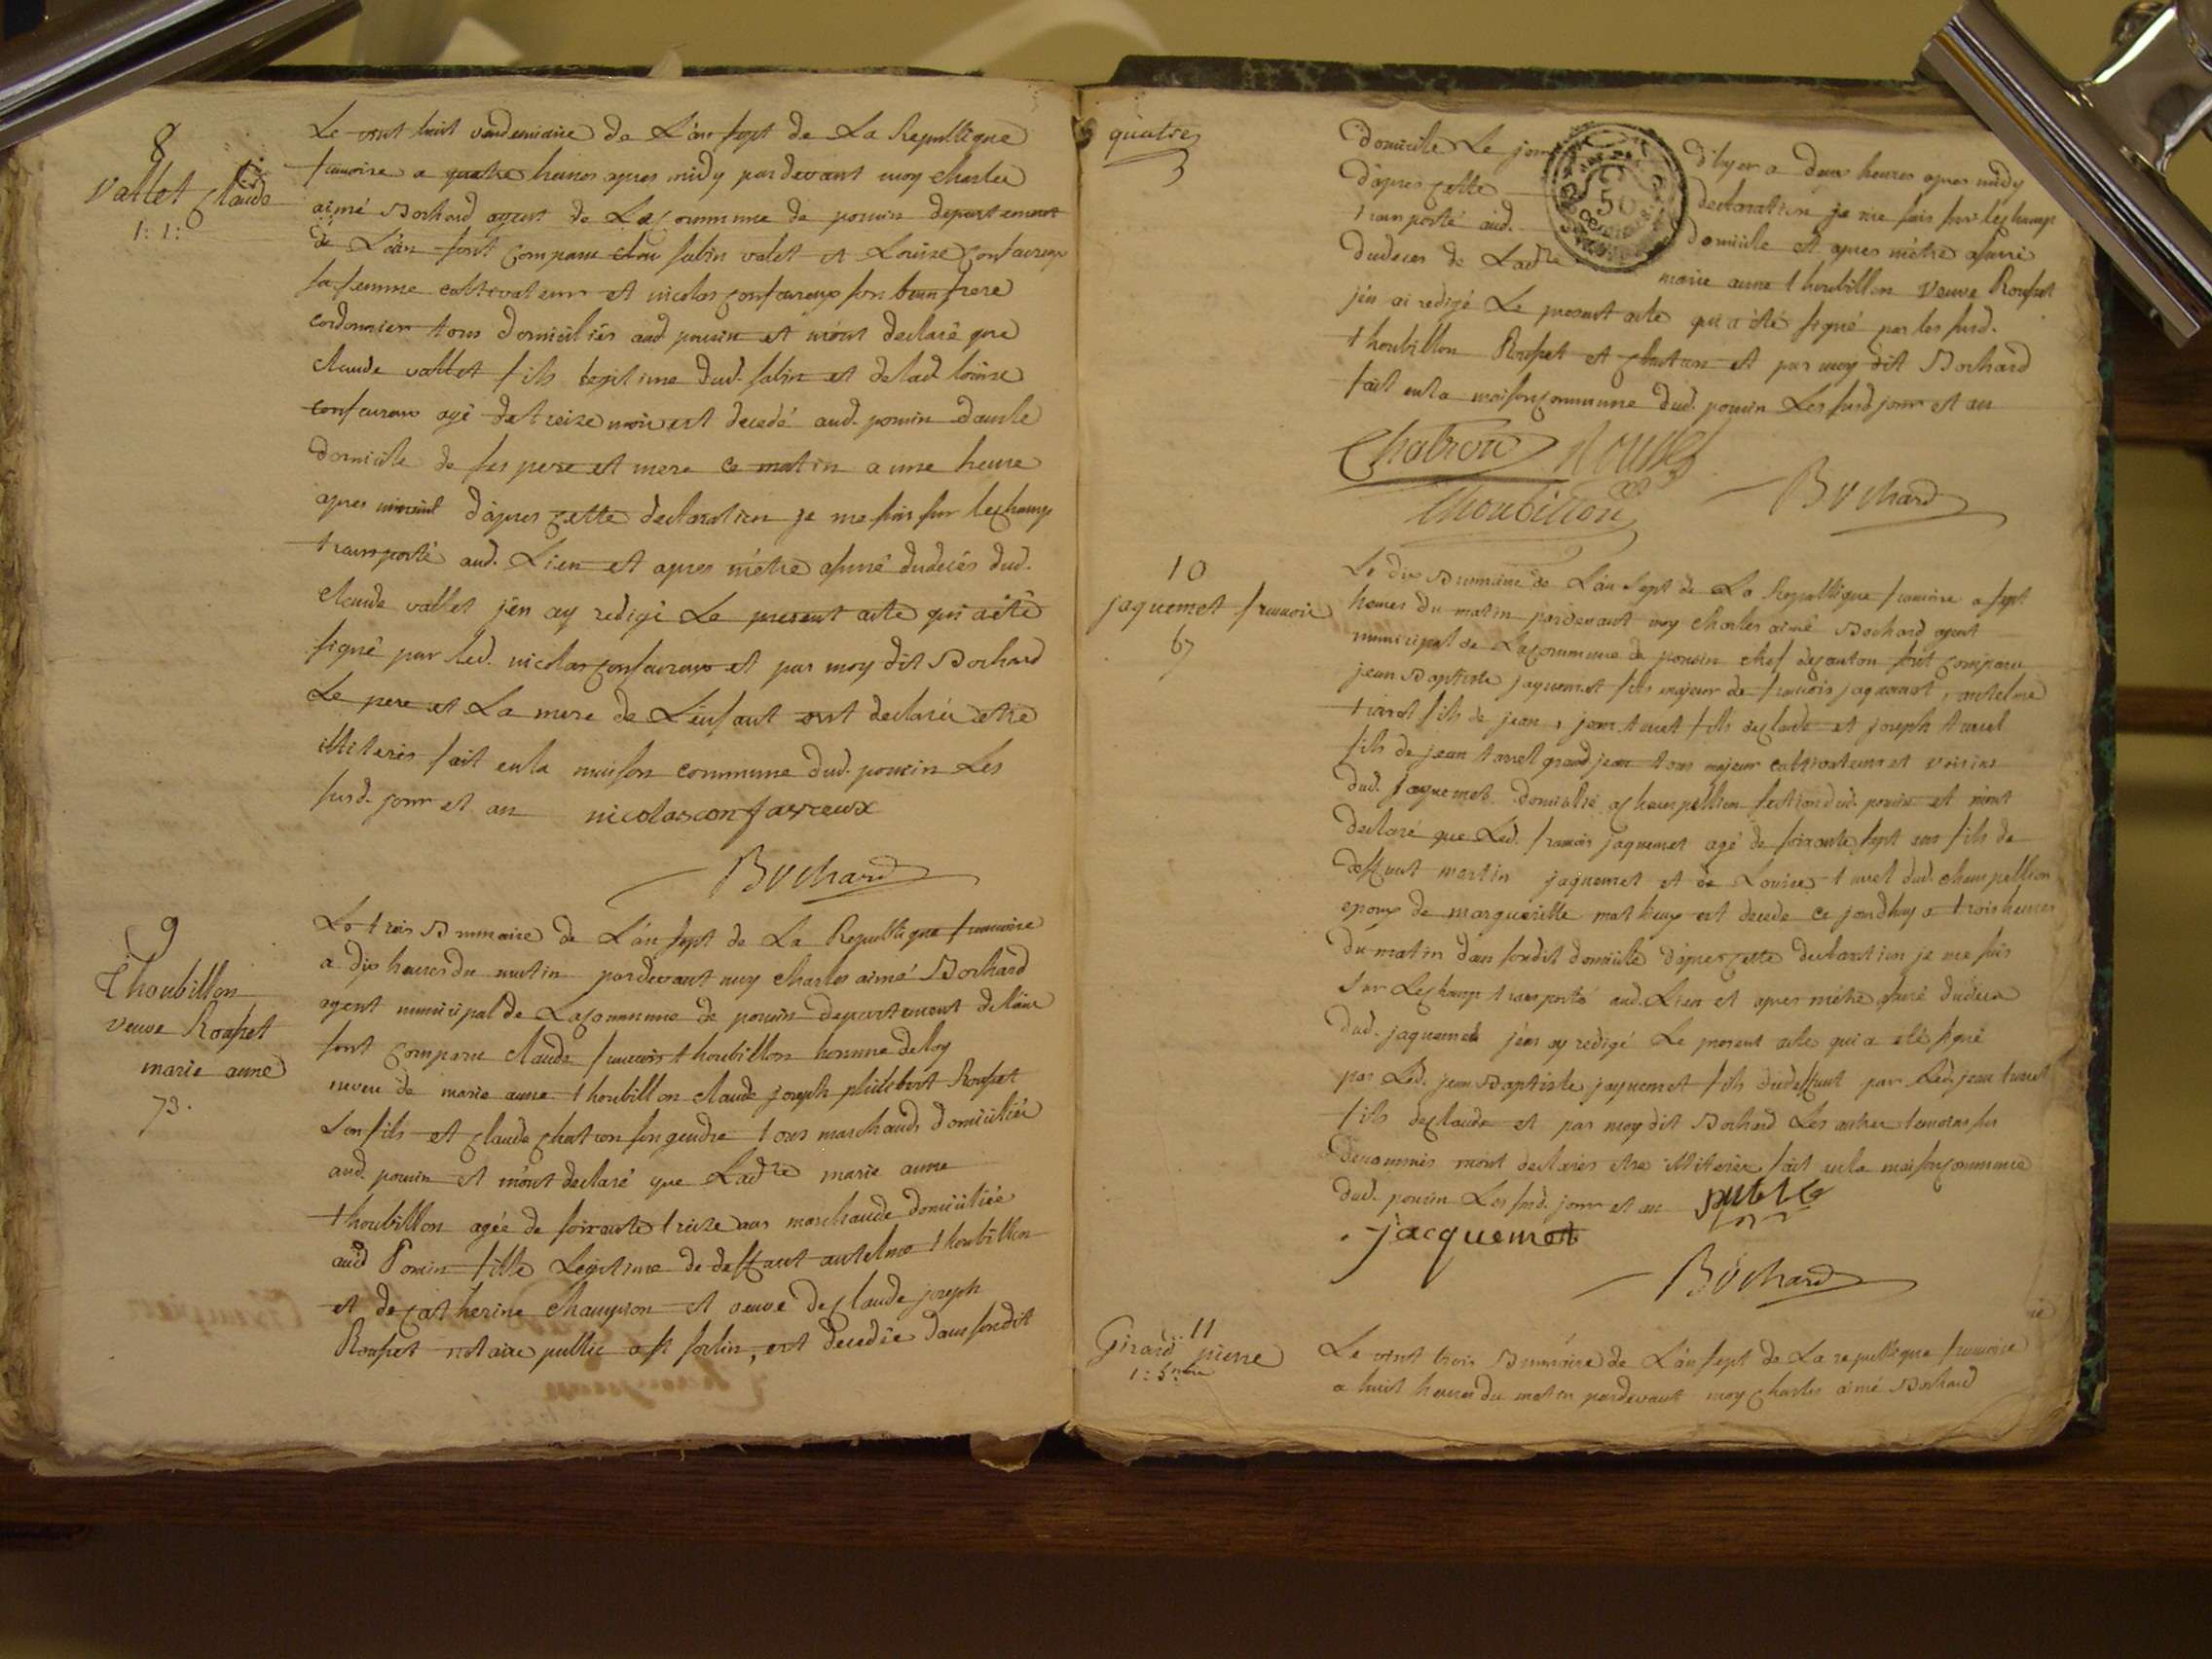 8
Vallet Claude
1: 1:
Le vint huit vendemiaire de L'an sept de La Republique
francoise a quatre heures apres midy pardevant moy charles
aimé Bochard agent de La commune de poncin departement
de L'ain sont comparu sabin valet et Louise confavreux
sa femme cultivateur et nicolas confavreux son beau frere
cordonnier tous domiciliés aud poncin et m'ont declaré que
claude vallet fils legitime dud. sabin et delad. louise
confavreux agé de treize mois est decedé aud. poncin dans le
domicile de ses pere et mere ce matin a une heure
apres minuit d'apres cette declaration je me suis sur lechamp
transporté aud. Lieu et apres m'étre assuré dudecés dud.
claude vallet j'en ay redigé Le present acte qui aété
signé par led. nicolas confavreux et par moy dit Bochard
Le pere et La mere de L'enfant ont declarés etre
illiterés fait enla maison commune dud. poncin Les
susd. jour et an nicolas confavreux
Bochard
9
Thoubillon
veuve Rousset
marie anne
73.
Le trois Brumaire de L'an sept de La Republique francoise
a dix heures du matin pardevant moy charles aimé Bochard
agent municipal de Lacommune de poncin departement delain
sont comparu claude francois thoubillon homme deloy
neveu de marie anne thoubillon claude joseph philibert Rousset
son fils et claude chatron son gendre tous marchands domiciliés
aud. poncin et m'ont declaré que Ladte marie anne
thoubillon agée de soixante treize ans marchande domiciliée
aud Poncin fille Legitime de deffunt antelme thoubillon
et de catherine champion et veuve de claude joseph
Rousset notaire public a st sorlin, est decedée dans sondit
quatre
domicile Le jour d'hyer a deux heures apres midy
d'apres cette declaration je me suis sur lechamp
transporté aud. domicile et apres m'étre assuré
dudeces de Ladte marie anne thoubillon veuve Rousset
j'en ai redigé Le present acte qui a été signé par les susd.
thoubillon Rousset et chatron et par moy dit Bochard
fait enla maison commune dud. poncin Les susd jour et an
Chatron Rousset
Thoubillon Bochard
10
jaquemet francois
67
Le dix Brumaire de L'an sept de La Republique francoise a sept
heures du matin pardevant moy charles aimé Bochard agent
municipal de Lacommune de poncin chef decanton sont comparu
jean Baptiste jaquemet fils majeur de francois jaquemet, antelme
fils de jean, jean turrel fils declaude et joseph turrel
fils de jean turrel grand jean tous majeur cultivateurs et voisins
dud. jaquemet domiciliés a champeillon section dud. poncin et m'ont
declaré que Led. francois jaquemet agé de soixante sept ans fils de
deffunt martin jaquemet et de Louise turrel dud. champeillon
epoux de marguerite mathieux est decedé ce jourdhuy a trois heures
du matin dans sondit domicile d'apres cette declaration je me suis
sur Lechamp transporté aud. Lieu et apres m'étre assuré dudeces
dud. jaquemet j'en ay redigé Le present acte qui a été signé
par Led. jean Baptiste jaquemet fils dudeffunt par Led. jean turrel
fils declaude et par moy dit Bochard Les autres temoins sus
denommés m'ont declarés etre illiterés fait enla maison commune
dud. poncin Les susd. jour et an
jacquemet
Bochard
11
Girard pierre
1: 5.
Le vint trois Brumaire de L'an sept de La republique francoise
a huit heures du matin pardevant moy charles aimé Bochard